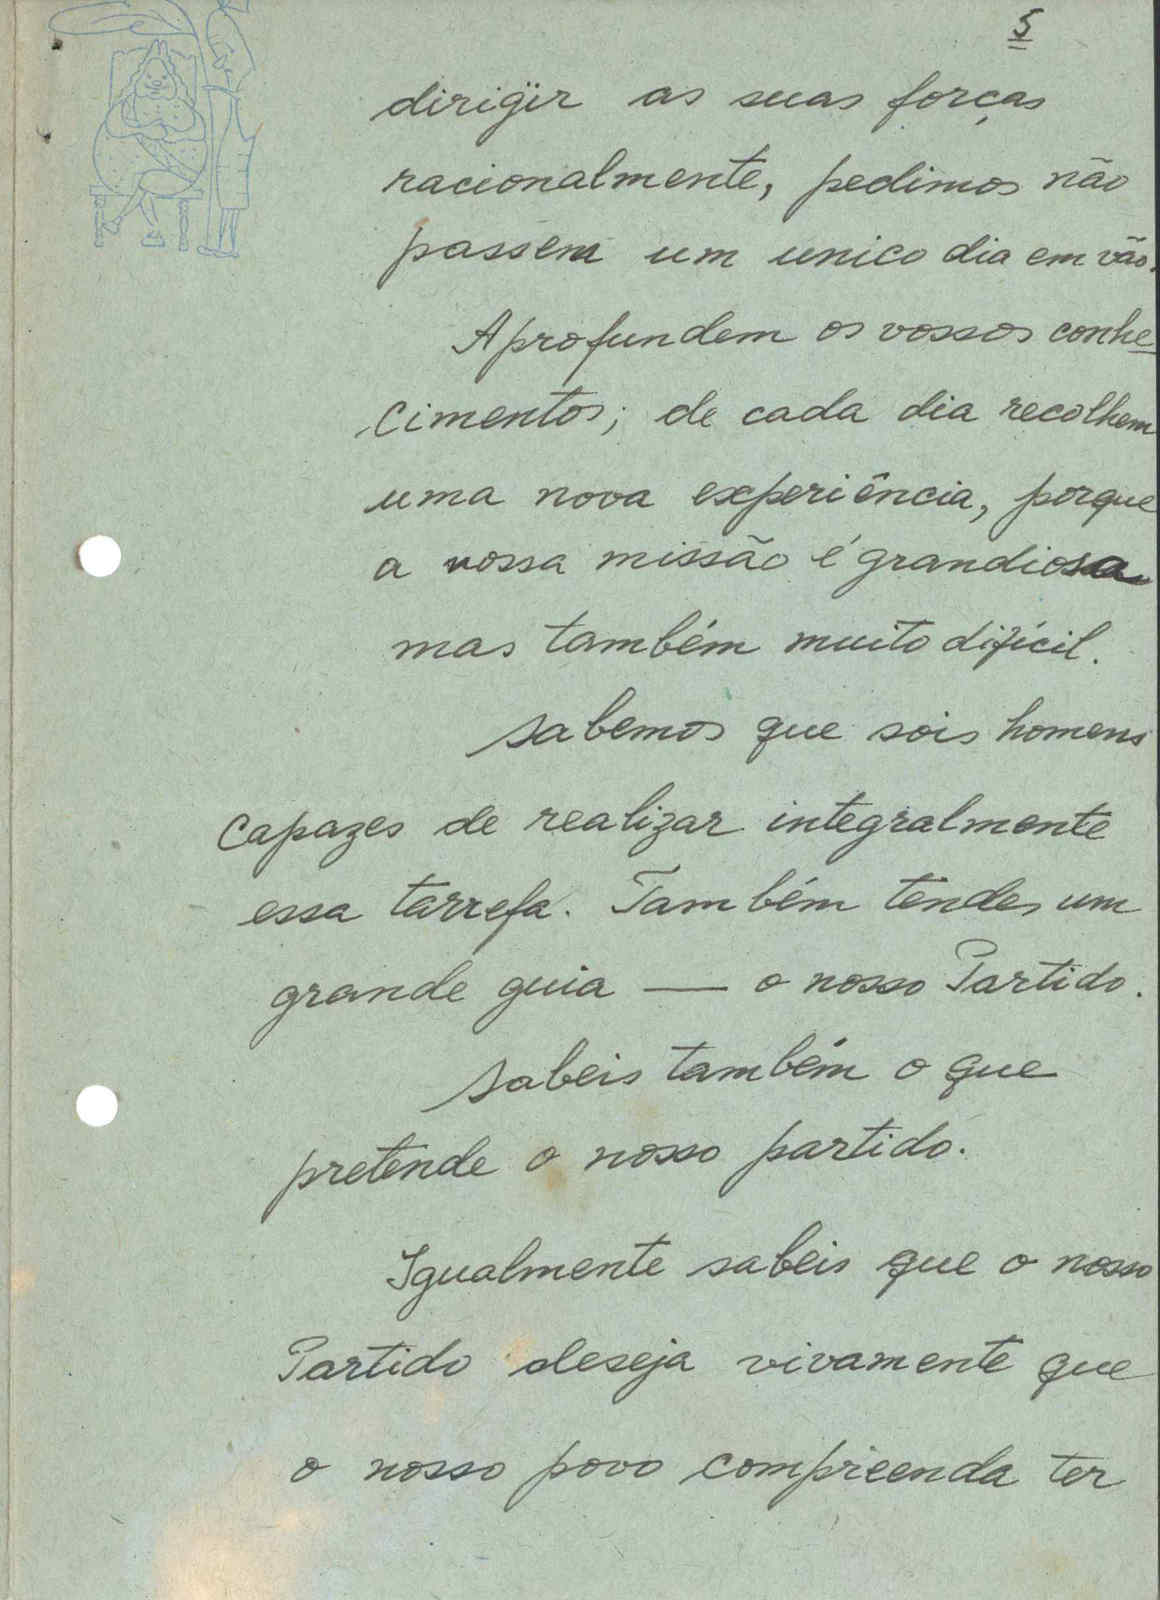 5
dirigir as suas forças
racionalmente, pedimos não
passem um unico dia em vão.
Aprofundem os vossos conhe
cimentos; de cada dia recolhem
uma nova experiência, porque
a vossa missão é grandiosa
mas também muito difícil.
Sabemos que sois homens
capazes de realizar integralmente
essa tarrefa. Também tendes um
grande guia — o nosso Partido.
Sabeis também o que
pretende o nosso partido.
Igualmente sabeis que o nosso
Partido deseja vivamente que
o nosso povo compreenda ter